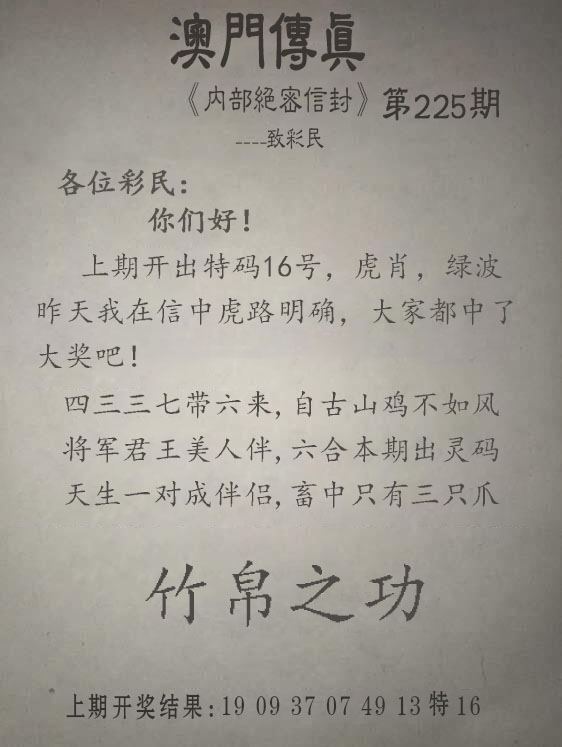 澳門傳真
《内部絕密信封》第225期
----致彩民
各位彩民:
你们好!
上期开出特码16号，虎肖，绿波
昨天我在信中虎路明确，大家都中了
大奖吧!
四三三七带六来,自古山鸡不如风
将军君王美人伴,六合本期出灵码
天生一对成伴侣,畜中只有三只爪
竹帛之功
上期开奖结果:19 09 37 07 49 13特16